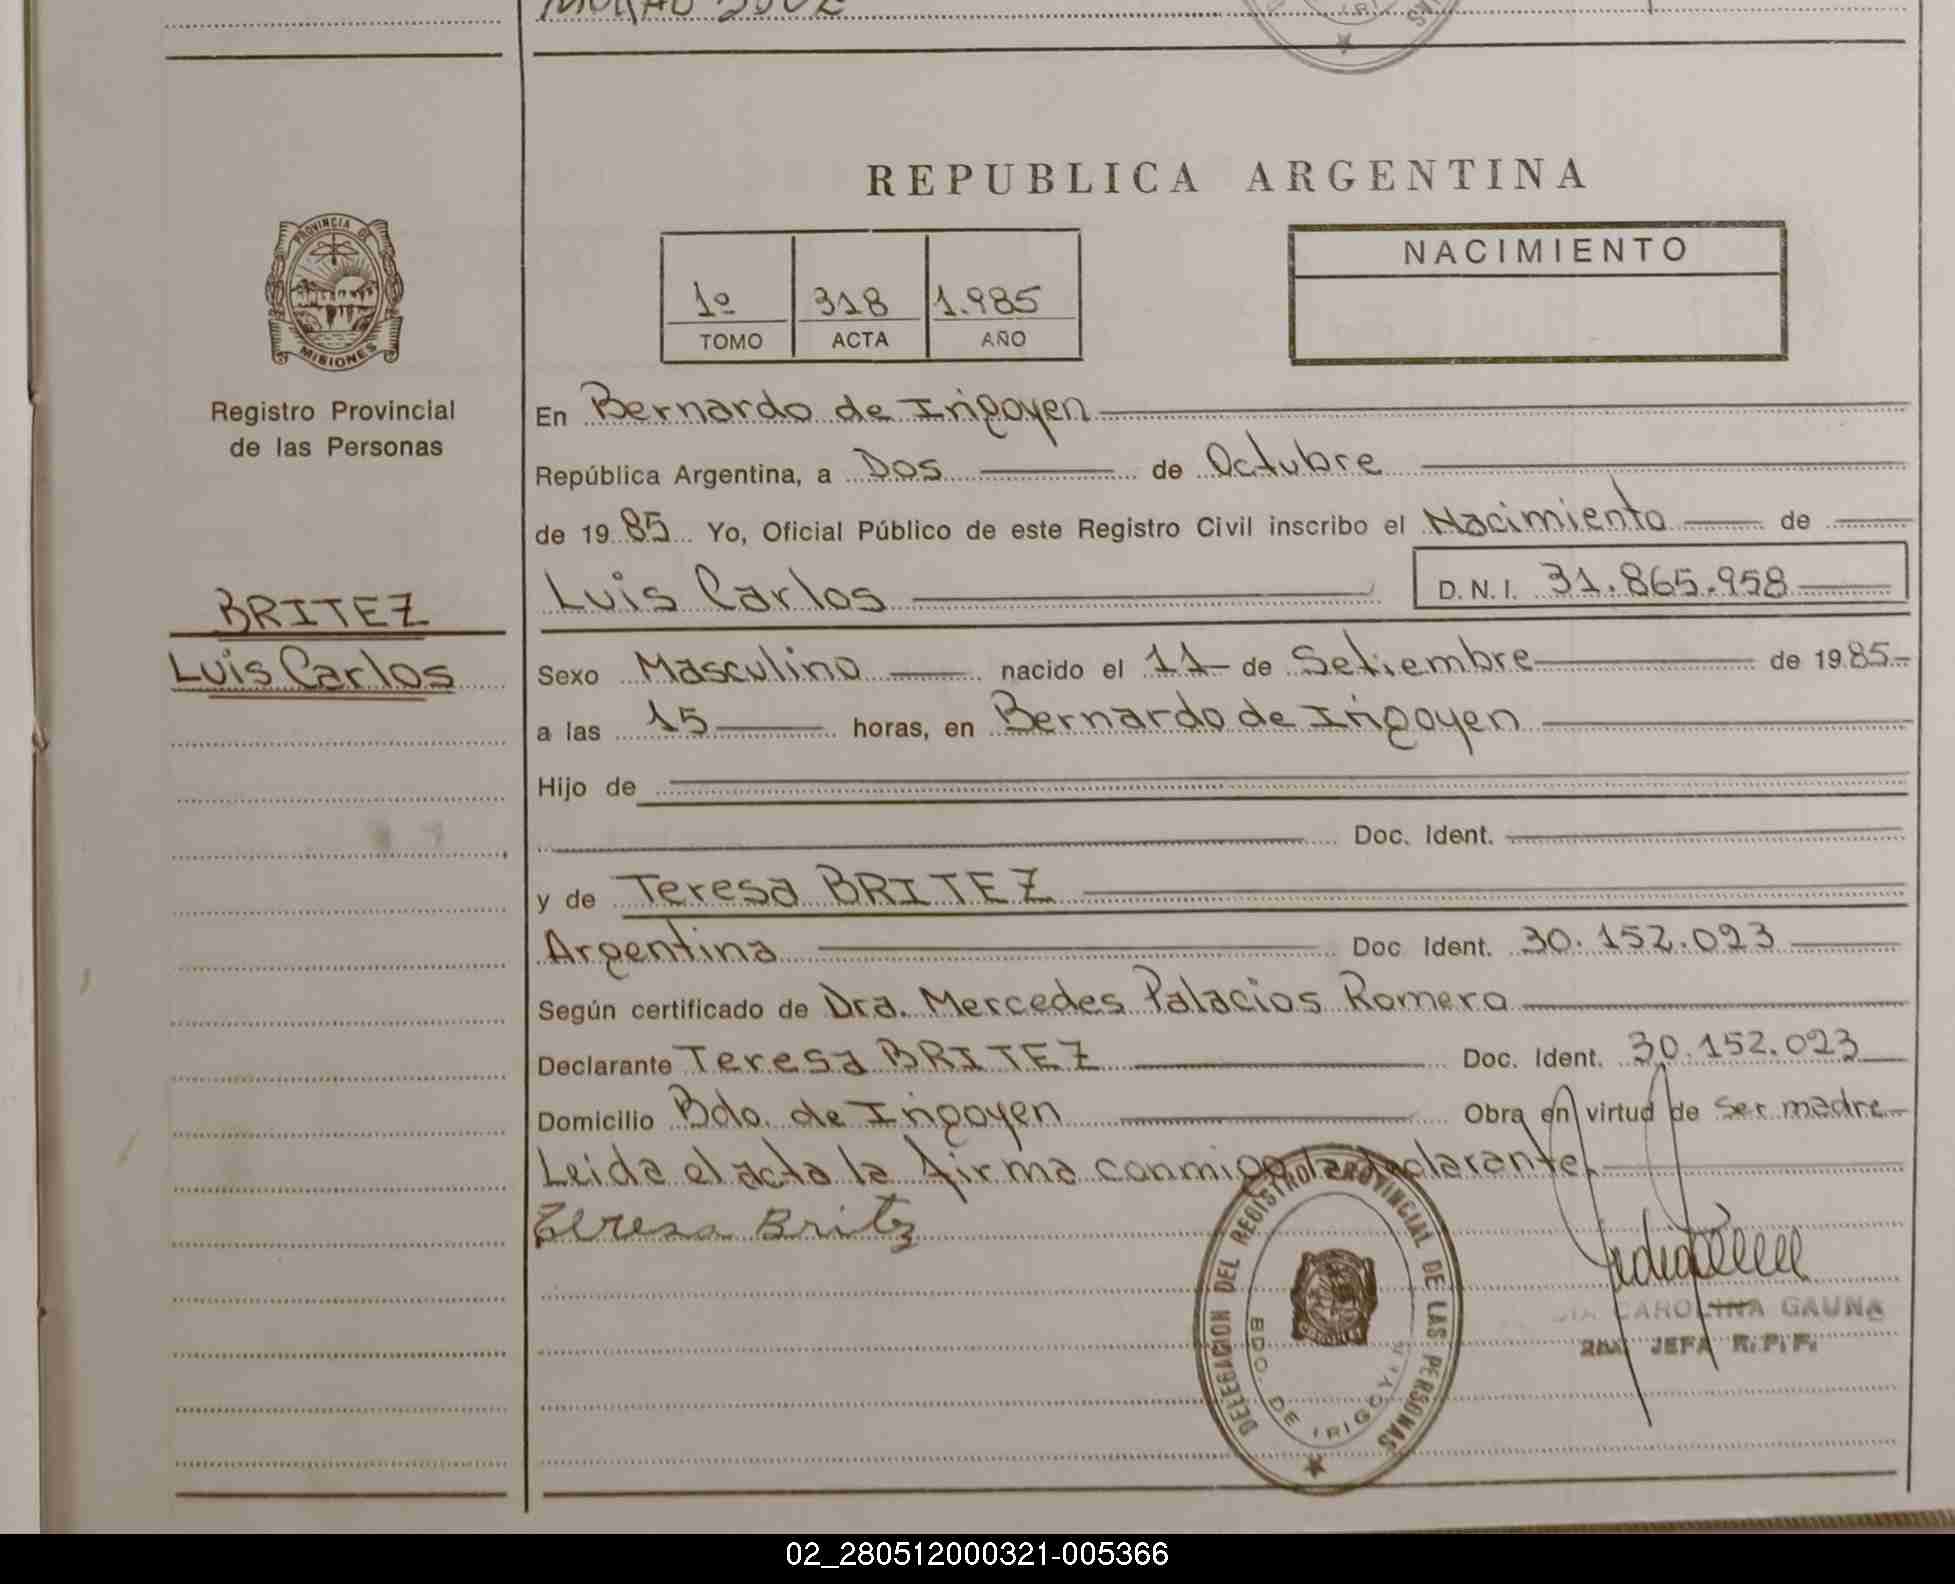 REPUBLICA ARGENTINA
PROVINCIA DE
MISIONES
Registro Provincial
de las Personas
BRITEZ
Luis Carlos
1º 318 1.985
TOMO ACTA AÑO
NACIMIENTO
En Bernardo de Irigoyen
República Argentina, a Dos de Octubre
de 19 85 Yo, Oficial Público de este Registro Civil inscribo el Nacimiento de
Luis Carlos D.N.I. 31.865.958
Sexo Masculino nacido el 11 de Setiembre de 19 85
a las 15 horas, en Bernardo de Irigoyen
Hijo de
Doc. Ident.
y de Teresa BRITEZ
Argentina Doc Ident. 30.152.023
Según certificado de Dra. Mercedes Palacios Romero
Declarante Teresa BRITEZ Doc. Ident. 30.152.023
Domicilio Bdo. de Irigoyen Obra en virtud de ser madre
Leida el acta la firma conmigo la declarante.
Teresa Britez
DELEGACION DEL REGISTRO PROVINCIAL DE LAS PERSONAS
BDO. DE IRIGOYEN
CAROLINA GAUNA
JEFA R.P.P.
02_280512000321-005366